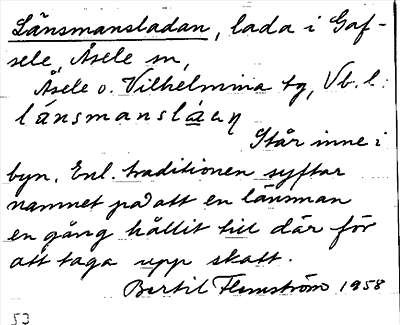 Länsmansladan, lada i Gaf-
sele, Åsele sn,
Åsele o. Vilhelmina tg, Vb. l.
länsmansláaɳ
Står inne i
byn. Enl. traditionen syftar
namnet på att en länsman
en gång hållit till där för
att taga upp skatt.
Bertil Flemström 1958
53